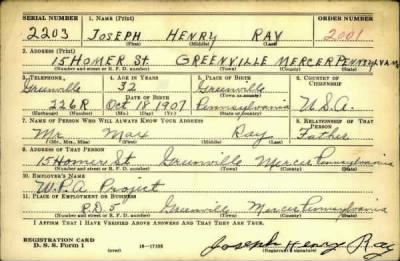 SERIAL NUMBER 1. NAME (Print) ORDER NUMBER
2203 JOSEPH HENRY RAY 2001
(First) (Middle) (Last)
2. ADDRESS (Print)
15 HOMER St. GREENVILLE MERCER PENNSYLVANIA
(Number and street or R. F. D. number) (Town) (County) (State)
3. TELEPHONE 4. AGE IN YEARS 5. PLACE OF BIRTH 6. COUNTRY OF CITIZENSHIP
Greenville 32 Greenville
DATE OF BIRTH
226R Oct 18 1907 Pennsylvania U.S.A.
7. NAME OF PERSON WHO WILL ALWAYS KNOW YOUR ADDRESS 8. RELATIONSHIP OF THAT PERSON
Mr. Max Ray Father
(Mr., Mrs., Miss) (First) (Middle) (Last)
9. ADDRESS OF THAT PERSON
15 Homer St Greenville Mercer Pennsylvania
(Number and street or R. F. D. number) (Town) (County) (State)
10. EMPLOYER'S NAME
W.P.A Project
11. PLACE OF EMPLOYMENT OR BUSINESS
R.D.5 Greenville Mercer Pennsylvania
(Number and street or R. F. D. number) (Town) (County) (State)
I AFFIRM THAT I HAVE VERIFIED ABOVE ANSWERS AND THAT THEY ARE TRUE.
REGISTRATION CARD
D. S. S. Form 1 16-17105 Joseph Henry Ray
(Registrant's signature)